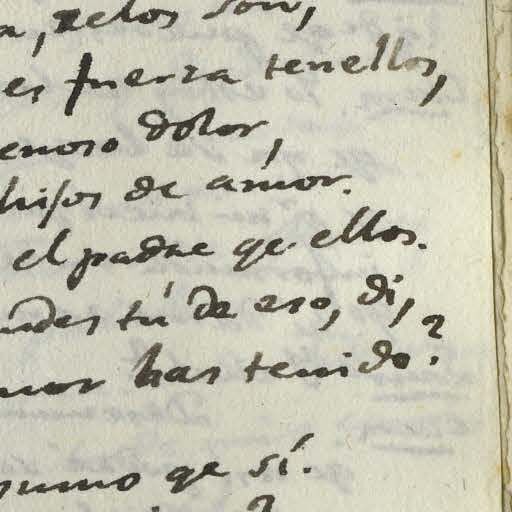 zelos son,
es fuerza tenellos,
dolor,
hijos de amor.
el padre qe. ellos.
tú de eso, di,
has tenido?
qe sí.